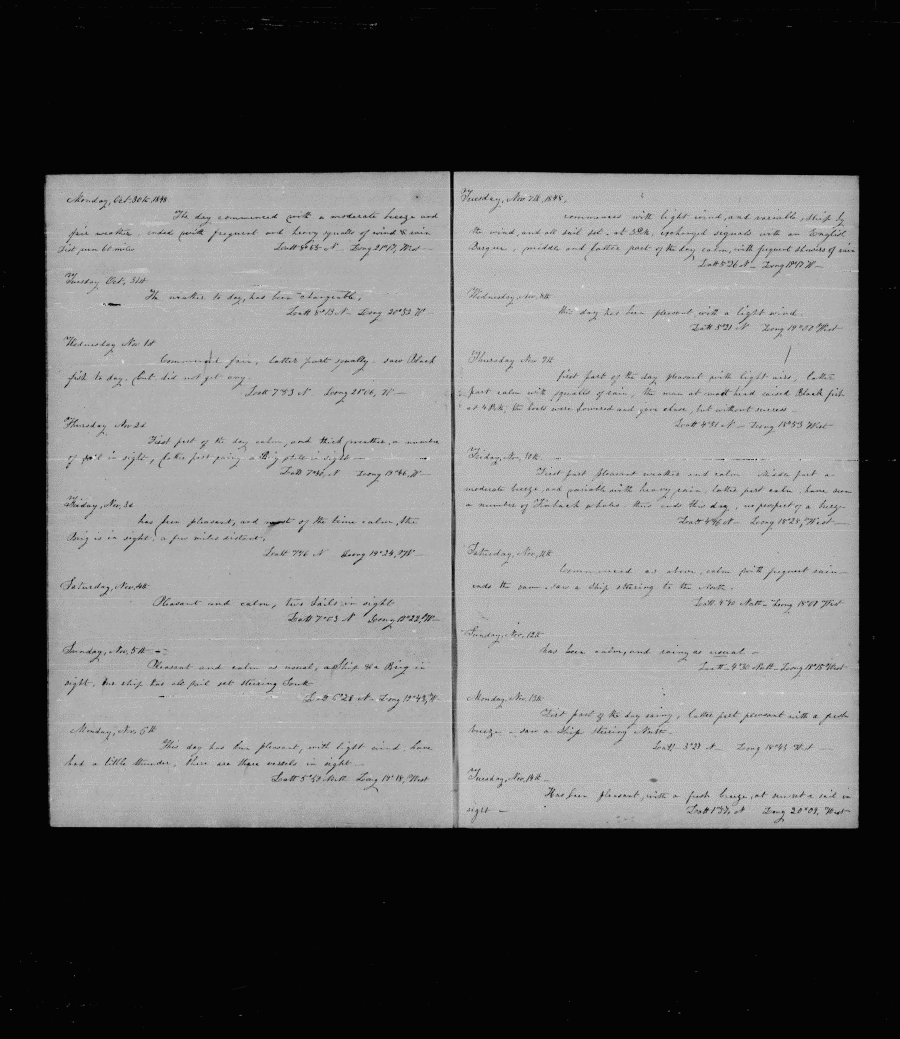 Monday, Oct. 30th 1848
The day commenced with a moderate breeze and
fair weather, ended with frequent and heavy squalls of wind & rain
Dist. 60 miles Latt N - Long 21°17, West
Tuesday Oct, 31st
The weather to day, has been changeable,
Latt 8°13 N - Long 20°52 W -
Wednesday Nov 1st
Commenced fair, latter part squally. saw Black
fish to day, but did not get any.
Latt 7°53 N Long 21°06, W -
Thursday Nov 2d
First part of the day calm, and thick weather, a number
of sail in sight, latter part a Brig still in sight
Latt N Long 19°46, W -
Friday, Nov, 3d
has been pleasant, and most of the time calm, the
Brig is in sight. a few miles distant,
Latt N Long 19°24, W -
Saturday, Nov, 4th
Pleasant and calm, two Sails in sight
Latt 7°03 N Long 19°22, W -
Sunday, Nov, 5th -
Pleasant and calm as usual, a Ship & a Brig in
sight, the ship has all sail set steering South
Latt 6°28 N - Long 19°43, W
Monday, Nov. 6th
This day has been pleasant, with light wind. have
had a little thunder, there are three vessels in sight -
Latt 5°52 North Long 19°18, West
Tuesday, Nov 7th, 1848,
commences with light wind, and variable, Ship by
the wind, and all sail set - at 3 P.M. exchanged signals with an English
Barque, middle and latter part of the day calm, with frequent showers of rain
Latt 5°36 N - Long 18°47 W -
Wednesday, Nov. 8th
this day has been pleasant, with a light wind.
Latt 5°21 N Long 19°00 West
Thursday Nov 9th
first part of the day pleasant with light airs, latter
part calm with squalls of rain, the man at mast head raised Black fish
at 4 P.M, the boats were lowered and gave chase, but without success
Latt 4°51 N - Long 18°53 West
Friday, Nov, 10th
First part Pleasant weather and calm. Middle part a
moderate breeze, and variable with heavy rain, latter part calm, have seen
a number of Finback whales. thus ends this day, no prospect of a breeze
Latt 4°46 N - Long 18°28, West -
Saturday, Nov, 11th
Commenced as above, calm with frequent rain
ends the same, saw a Ship steering to the North.
Latt 4°30 North - Long 18°01 West
Sunday, Nov, 12th
has been calm, and rainy as usual -
Latt - 4°30 North - Long 18°15 West
Monday, Nov. 13th
First part of the day rainy, latter part pleasant with a fresh
breeze - saw a Ship steering North.
Latt - 3°21 N - Long 18°43 West -
Tuesday, Nov, 14th -
Has been pleasant, with a fresh breeze, at sunset a sail in
sight - Latt 1°57, N Long 20°09, West